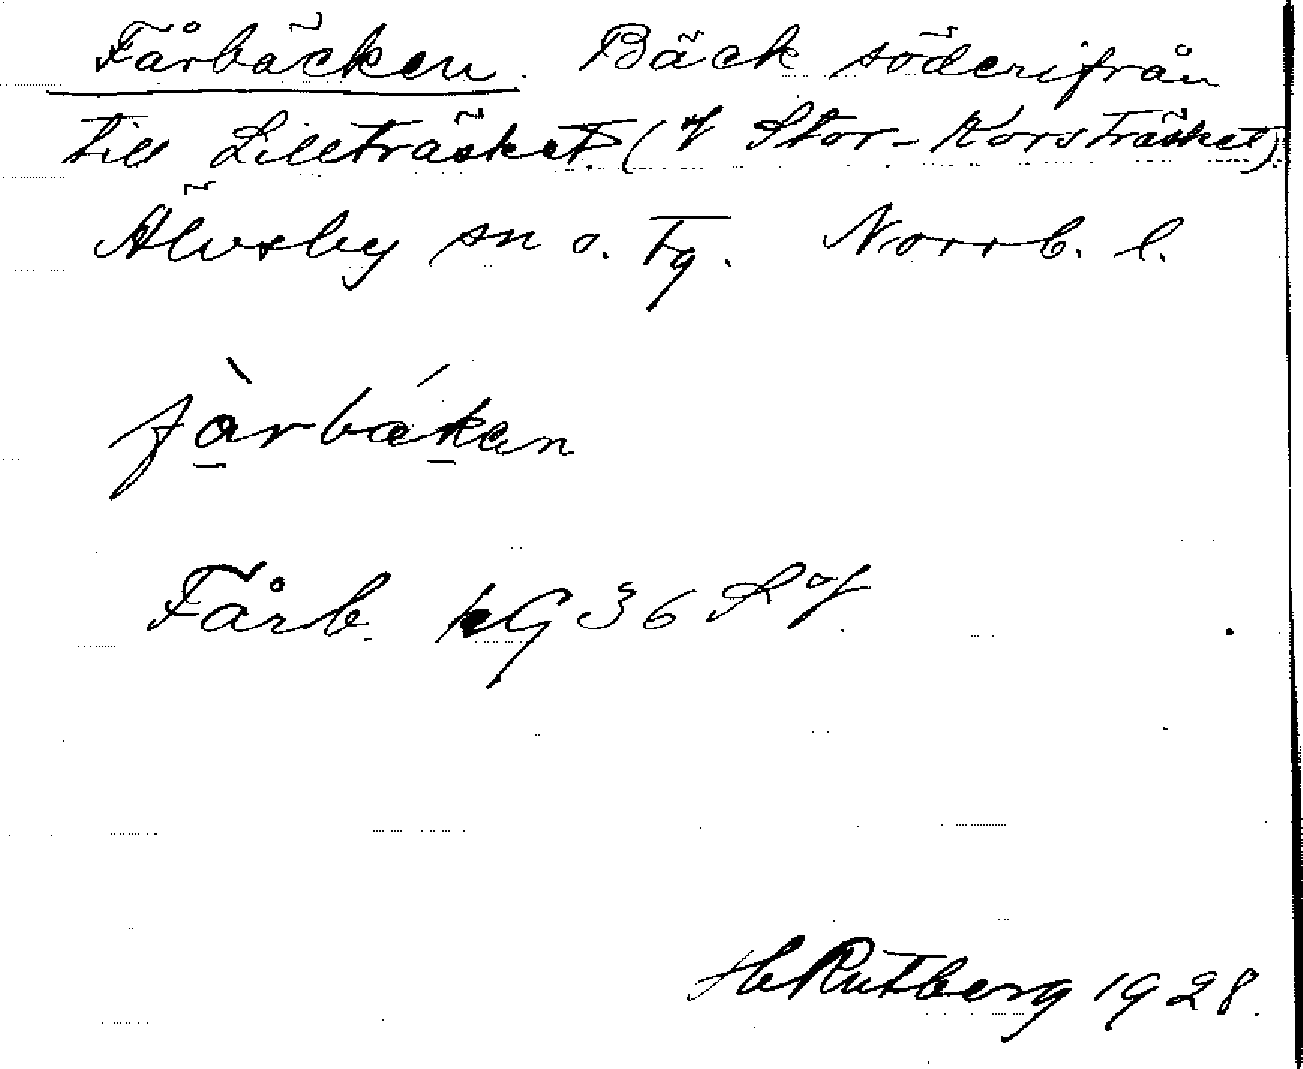 Fårbäcken. Bäck söderifrån
till Lillträsket (i Stor-Korsträsket)
Älvsby sn o. tg. Norrb. l.
fàrbáken
Fårb. kG 36 SV
H Rutberg 1928.